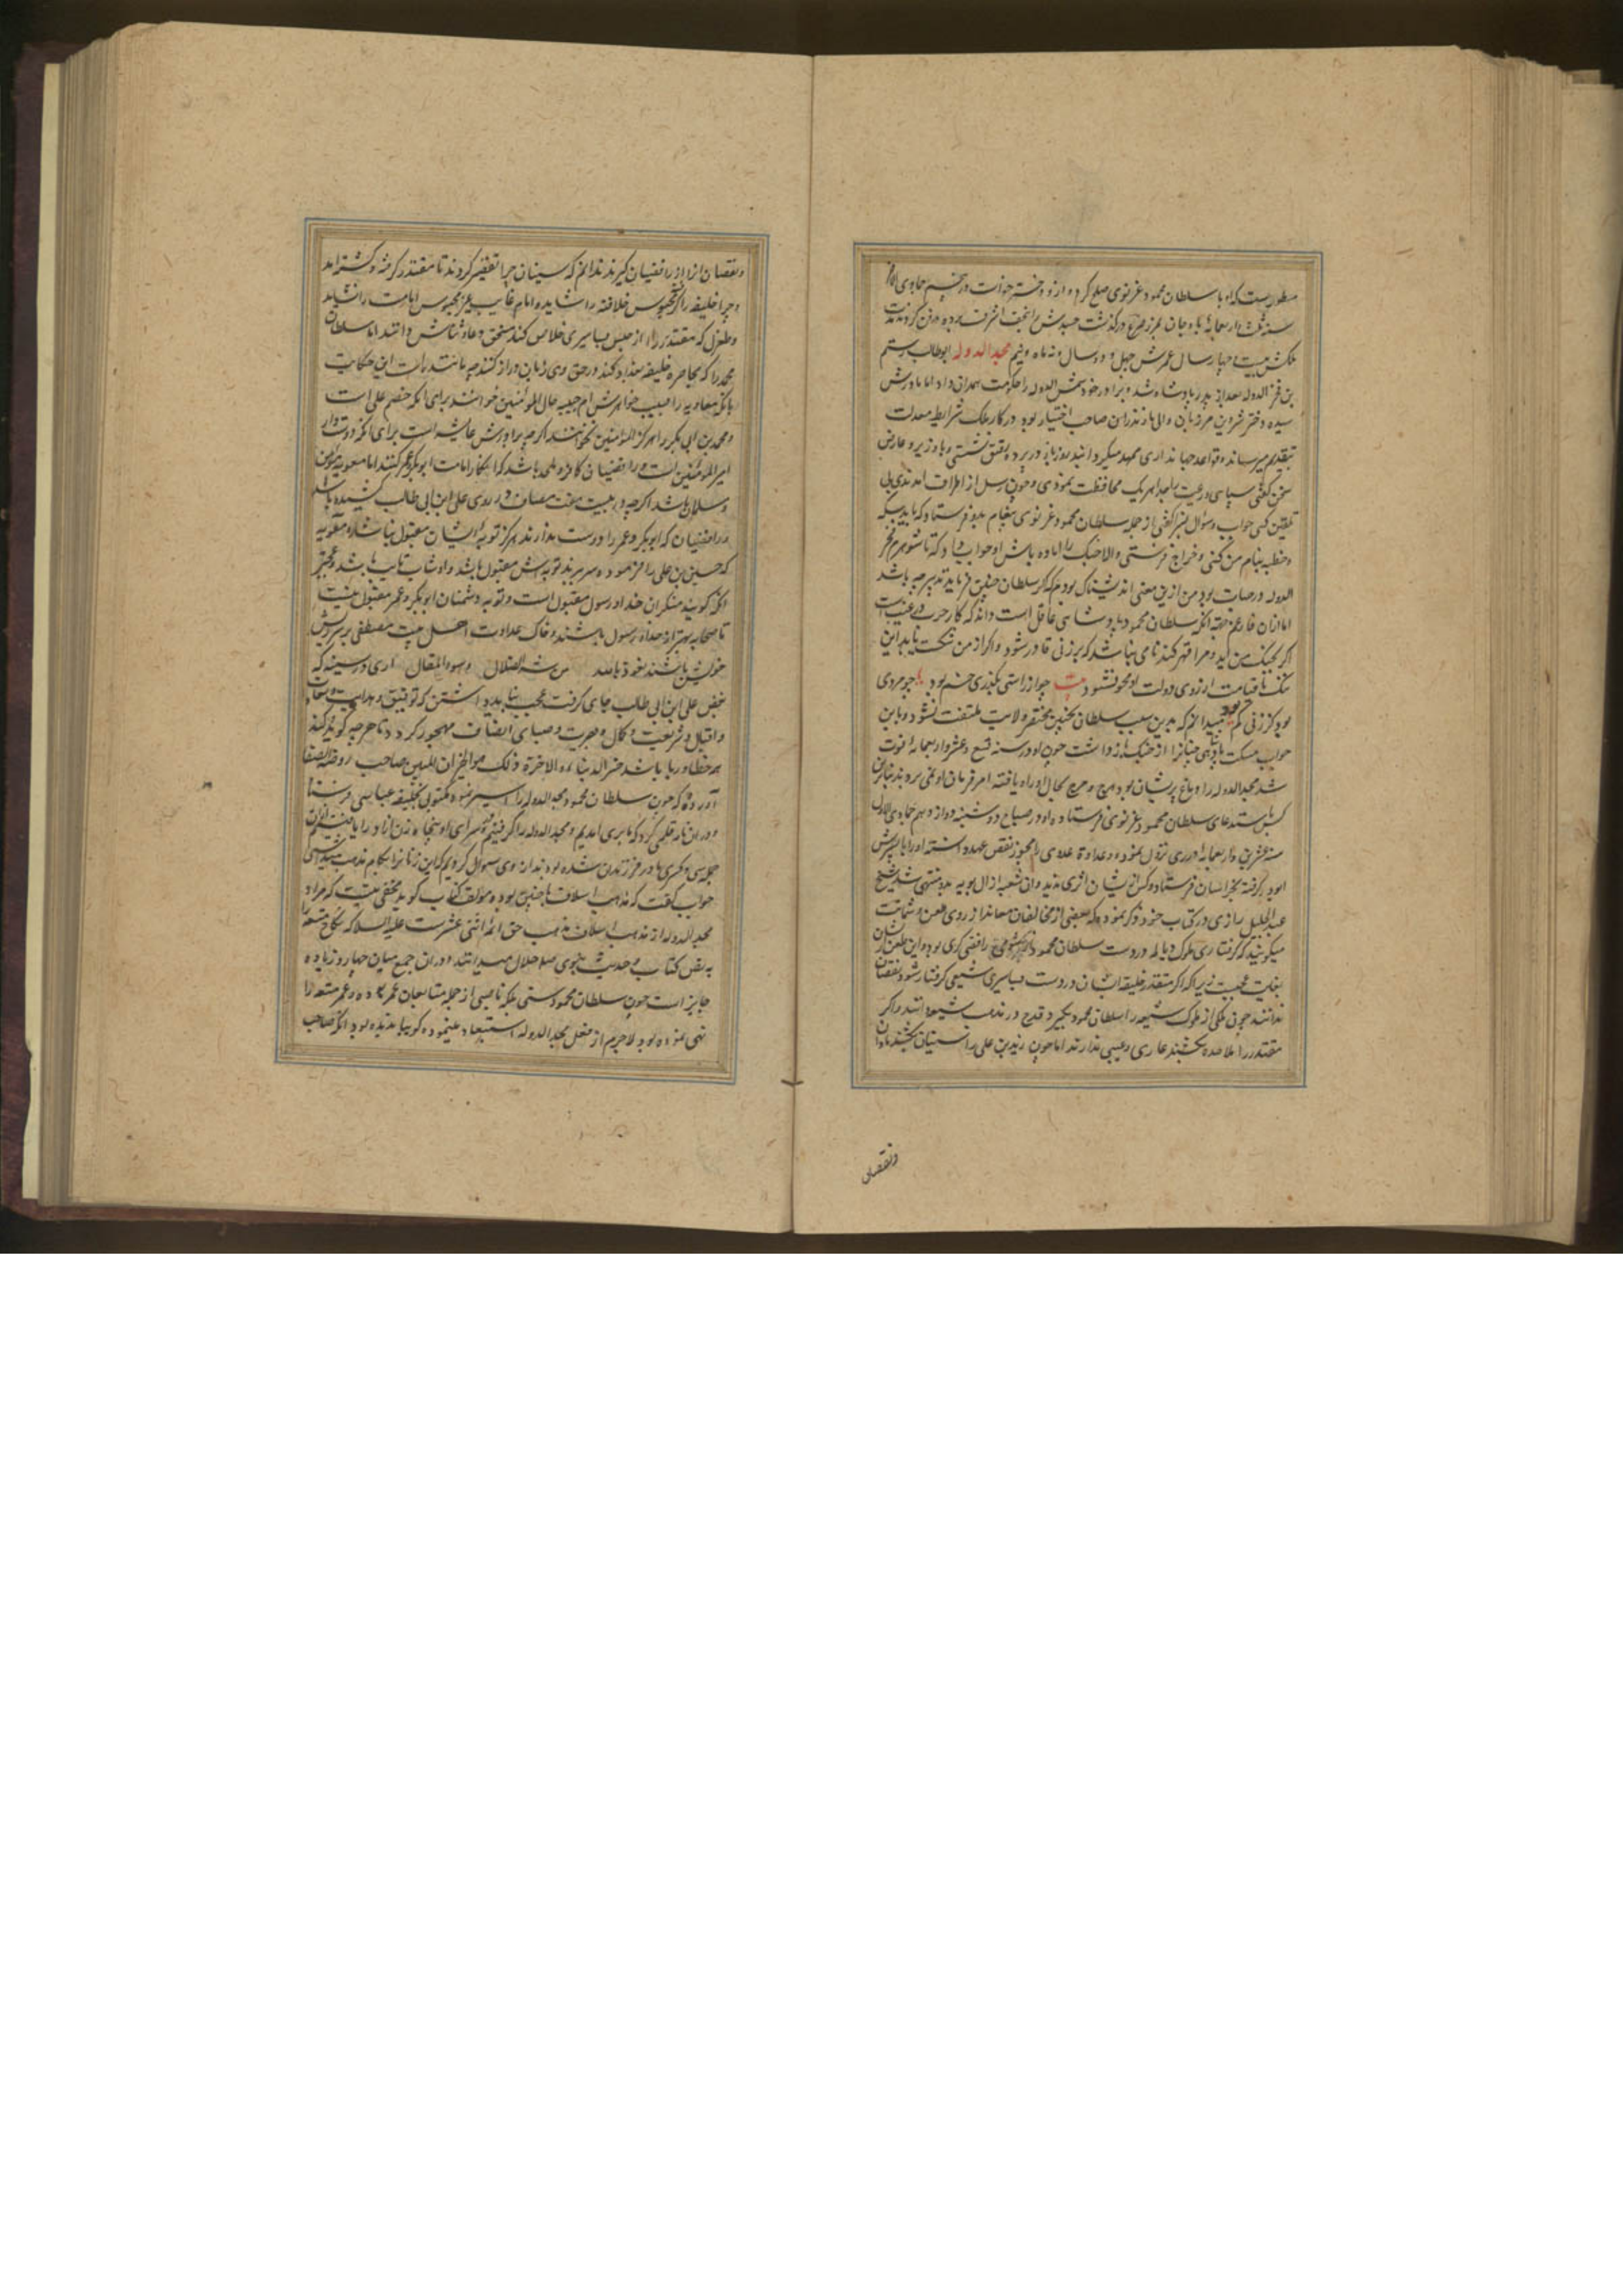 مسطور است که او با سلطان محمود غزنوی صلح کرد و از و دختر خواست و در پنجم جمادی الاخر
سنه ثلث و اربعمایه با رجان بمرز صرع درگذشت جسدش را بنجف اشرف برده دفن کردند مدت
ملکش بیست و چهار سال عمرش چهل و دو سال و نه ماه و نیم مجد الدوله ابوطالب رستم
بن فخر الدوله بعد از پدر پادشاه شد و برادر خود شمس الدوله را حکومت همدان داد اما مادرش
سیده دختر شروین مرزبان والی مازندران صاحب اختیار بود در کار ملک شرایط معدلت
بتقدیم میرساند و قواعد جهانداری ممهد میکردانید روز بار در پرده تنق نشستی و با وزیر و عارض
سخن گفتی سپاهی و رعیت را بواجب محافظت نمودی و چون رسل از اطراف آمدندی بی
تلقین کسی جواب و سوال بشر کفتی از جمله سلطان محمود غزنوی پیغام بدو فرستاد که باید سکه
و خطبه بنام من کنی و خراج فرستی و الا جنک را اماده باش او جواب داد که تا شوهرم فخر
الدوله در حیات بود من ازین معنی اندیشناک بودم که اگر سلطان چنین فرماید تدبیر چه باشد
اما از آن فارغم چه انکه سلطان محمود پادشاهی عاقل است داند که کار حرب در غیب است
اگر بجنک من آید و مرا قهر کند نامی نباشد که بر زنی قادر شود و اگر از من شکست یابد این
ننک تا قیامت از روی دولت او محو نشود بیت چو از راستی بکذری خم بود چو مردی
بود کز زنی کم بود میدانم که بدین سبب سلطان بچنین محقر ولایت ملتفت نشود و باین
جواب مسکت پادشاهی چنان را از جنک باز داشت چون او در سنه تسع و عشر و اربعمایه فوت
شد مجد الدوله را دماغ پریشان بود هرج و مرج بحال او راه یافته امر و فرمان او نمی بردند بنابرین
کس باستدعای سلطان محمود غزنوی فرستاده او در صباح دوشنبه دوازدهم جمادی الاول
سنه عشرین و اربعمایه در ری نزول نموده و عداوة عدوی را مجوز نقض عهد دانسته او را با پسرش
ابودلف گرفته بخراسان فرستاد و کس از ایشان اثری ندید و آن شعبه از آل بویه بدو منتهی شد شیخ
عبد الجلیل رازی در کتاب خود ذکر نموده که بعضی از مخالفان معاند از روی طعن و شماتت
میکویند که گرفتاری ملوک دیالمه در دست سلطان محمود رافضی کری بود و این طعن ایشان
بغایت عجبست زیرا که اگر مقتدر خلیفه ایشان در دست بساسیری شیعی گرفتار شود نقصان
ندانند چون ملکی از ملوک شیعه را سلطان محمود بگیرد قدح در مذهب شیعه دانند و اگر
مقتدر را ملاحده بکشند عاری و عیبی ندارند اما چون زید بن علی را سنیان بکشند تاوان
ونقصان
ونقصان آنرا از رافضیان گیرند ندانم که سنیان چرا تقصیر کردند تا مقتدر گرفته و کشته آمد
و چرا خلیفه را که محبوس خلافة را شاید و امام غایب غیر محبوس امامت را نشاید
و طغرل که مقتدر را از حبس بساسیری خلاص کند مستحق دعا و ثناش دانند اما سلطان
محمد را که محاصره خلیفه بغداد کند در حق وی زبان دراز کنند چه مانند است این حکایت
بانکه معاویه را بسبب خواهرش ام حبیبه خال المؤمنین خوانند برای انکه خصم علی است
و محمد بن ابی بکر را هرگز خال المؤمنین نخوانند اگرچه برادرش عایشه است برای انکه دوستدار
امیر المؤمنین است و رافضیان کافر و ملحد باشند که انکار امامت ابوبکر و عمر کنند اما معویه مؤمن
و مسلمان باشد اگرچه در بیست و هفت مصاف در روی علی ابن ابی طالب کشیده باشد
و رافضیان که ابوبکر و عمر را دوست ندارند هرگز توبه ایشان مقبول نباشد و معویه
که حسین بن علی را فرموده سر برند توبه اش مقبول باشد و او شاب تایب باشد و عجبتر
انکه گویند منکران خدا و رسول مقبول است و توبه دشمنان ابوبکر و عمر مقبول نیست
تا صحابه بهتر از خدا و رسول باشند و خاک عداوت اهل بیت مصطفی بر سر و ریش
خویش باشند نعوذ بالله من شر الضلال و سوء المقال آری در سینه که
بغض علی ابن ابی طالب جای گرفت عجب نباید داشتن که توفیق و هدایت و سعادت
و اقبال و شریعت و کمال و بصیرت و صبای انصاف مهجور کردد تا هرچه گوید و کند
همه خطا و ریا باشد خسر الدنیا و الاخرة ذلک هو الخسران المبین صاحب روضة الصفا
آورده که چون سلطان محمود مجد الدوله را اسیر نمود مکتوبی بخلیفه عباسی فرستاد
و در آن نامه قلمی کرد که ما بری آمدیم و مجد الدوله را گرفتیم در سرای او پنجاه زن آزاد را یافتیم از آن
جمله سی و کسری مادر فرزندان شده بودند از وی سوال کردیم که این زنانرا بکدام مذهب میداشتی
جواب گفت که مذهب اسلاف ما چنین بود مؤلف کتاب گوید مخفی نیست که مراد
مجد الدوله از مذهب اسلاف مذهب حق ائمه اثنی عشرست علیه السلام که نکاح متعه را
به نص کتاب و حدیث نبوی صلعم حلال میدانند و در آن جمع میان چهار و زیاده
جایز است چون سلطان محمود سنی بلکه ناصبی از جمله متابعان عمر بوده و عمر متعه را
نهی نموده بود لاجرم از فعل مجد الدوله استبعاد مینموده گویا ندیده بود انکه صاحب